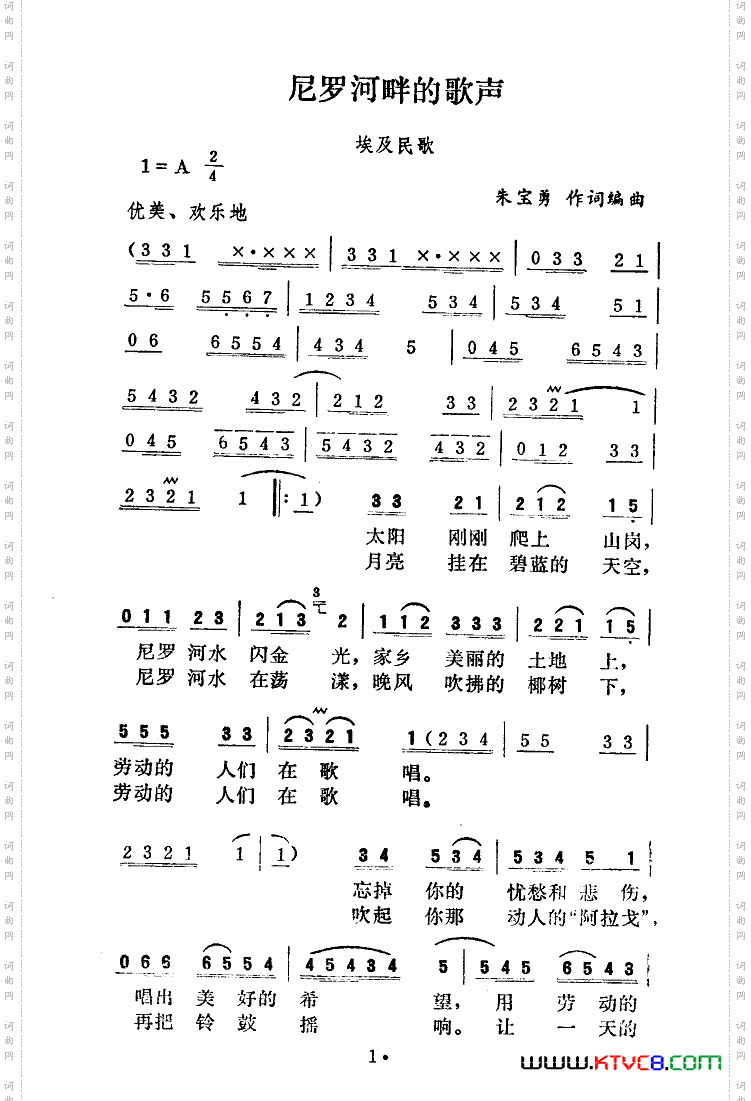 尼罗河畔的歌声
埃及民歌
1=A 2/4
朱宝勇 作词编曲
优美、欢乐地
(331 ×·××× | 331 ×·××× | 033 21 |
5·6 5567 | 1234 534 | 534 51 |
06 6554 | 434 5 | 045 6543 |
5432 432 | 212 33 | 2321 1 |
045 6543 | 5432 432 | 012 33 |
2321 1 ‖: 1) 33 21 | 212 15 |
太阳 刚刚 爬上 山岗,
月亮 挂在 碧蓝的 天空,
011 23 | 213 2 | 112 333 | 221 15 |
尼罗 河水 闪金 光,家乡 美丽的 土地 上,
尼罗 河水 在荡 漾,晚风 吹拂的 椰树 下,
555 33 | 2321 1(234 | 55 33 |
劳动的 人们 在歌 唱。
劳动的 人们 在歌 唱。
2321 1 | 1) 34 534 | 534 5 1 |
忘掉 你的 忧愁和 悲伤,
吹起 你那 动人的“阿拉戈”,
066 6554 | 45434 5 | 545 6543 |
唱出 美好的 希 望,用 劳动的
再把 铃鼓 摇 响。让 一天的
1·
www.KTVC8.com
词曲网